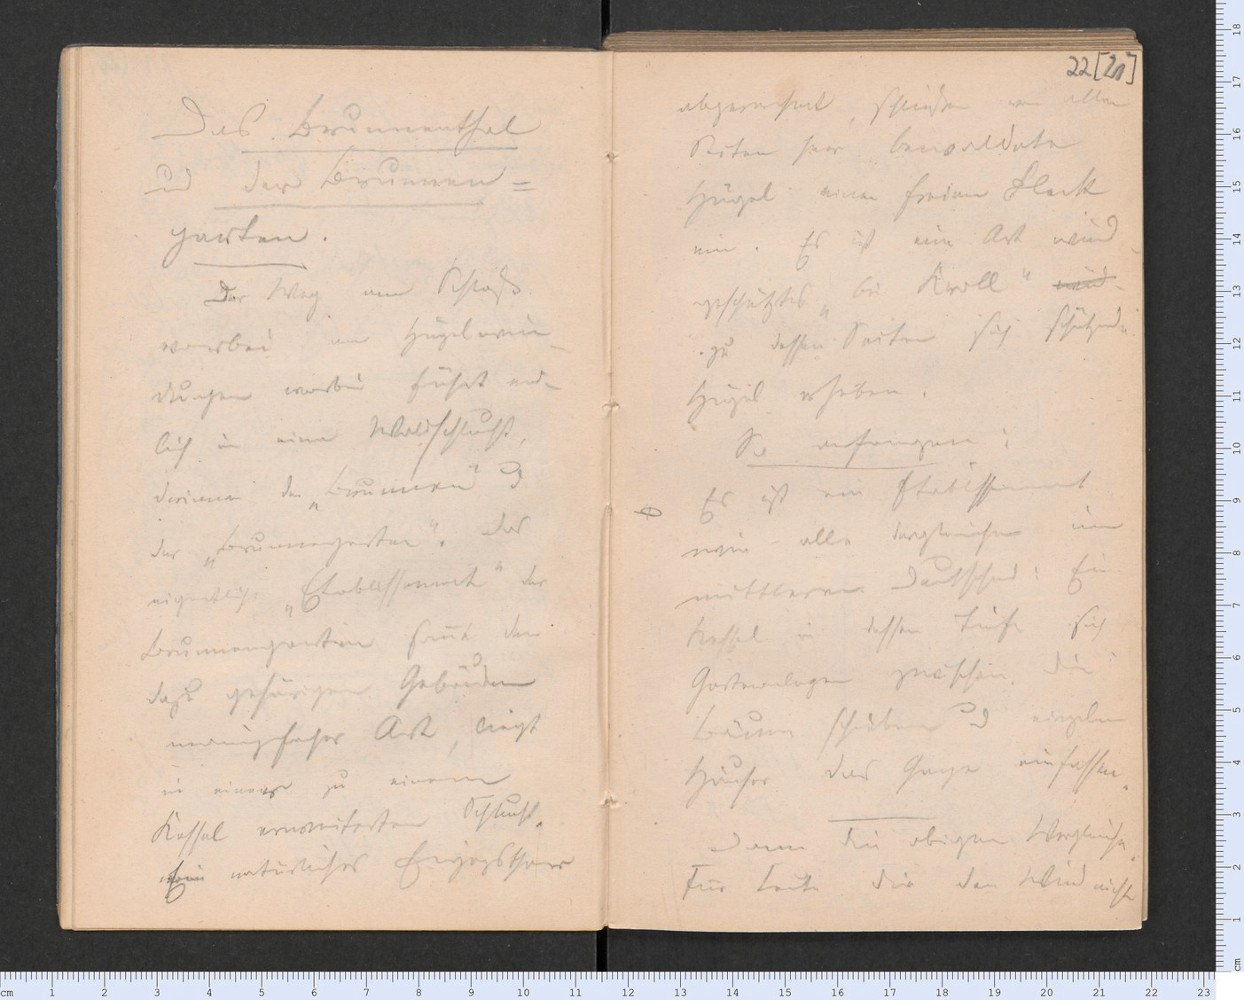 Das Brunnenthal
und der Brunnen=
garten.
Der Weg am Schloß
vorbei an Hügelwin-
dungen vorbei führt end-
lich in eine Waldschlucht,
darinnen der „Brunnen" u
der „Brunnengarten". Das
eigentliche „Etablissement" der
Brunnengarten sammt den
dazu gehörigen Gebäuden
mannigfacher Art, liegt
in einer zu einem
Kessel erweiterten Schlucht.
Ein natürliches
22[21]
abgerechnet, schließen von allen
Seiten her bewaldete
Hügel einen freien Fleck
ein. Es ist eine Art wind-
geschütztes „bei Kroll"
zu dessen Seiten sich schützende
Hügel erheben.
So anfangen:
Es ist ein Etablissement
wie alle dergleichen im
mittleren Deutschland: Ein
Kessel in dessen Tiefe sich
Gartenanlagen zwischen die
Bäume schieben und einzelne
Häuser das Ganze einfassen.
Dann die obigen Vergleiche.
Für Leute die den Wind nicht